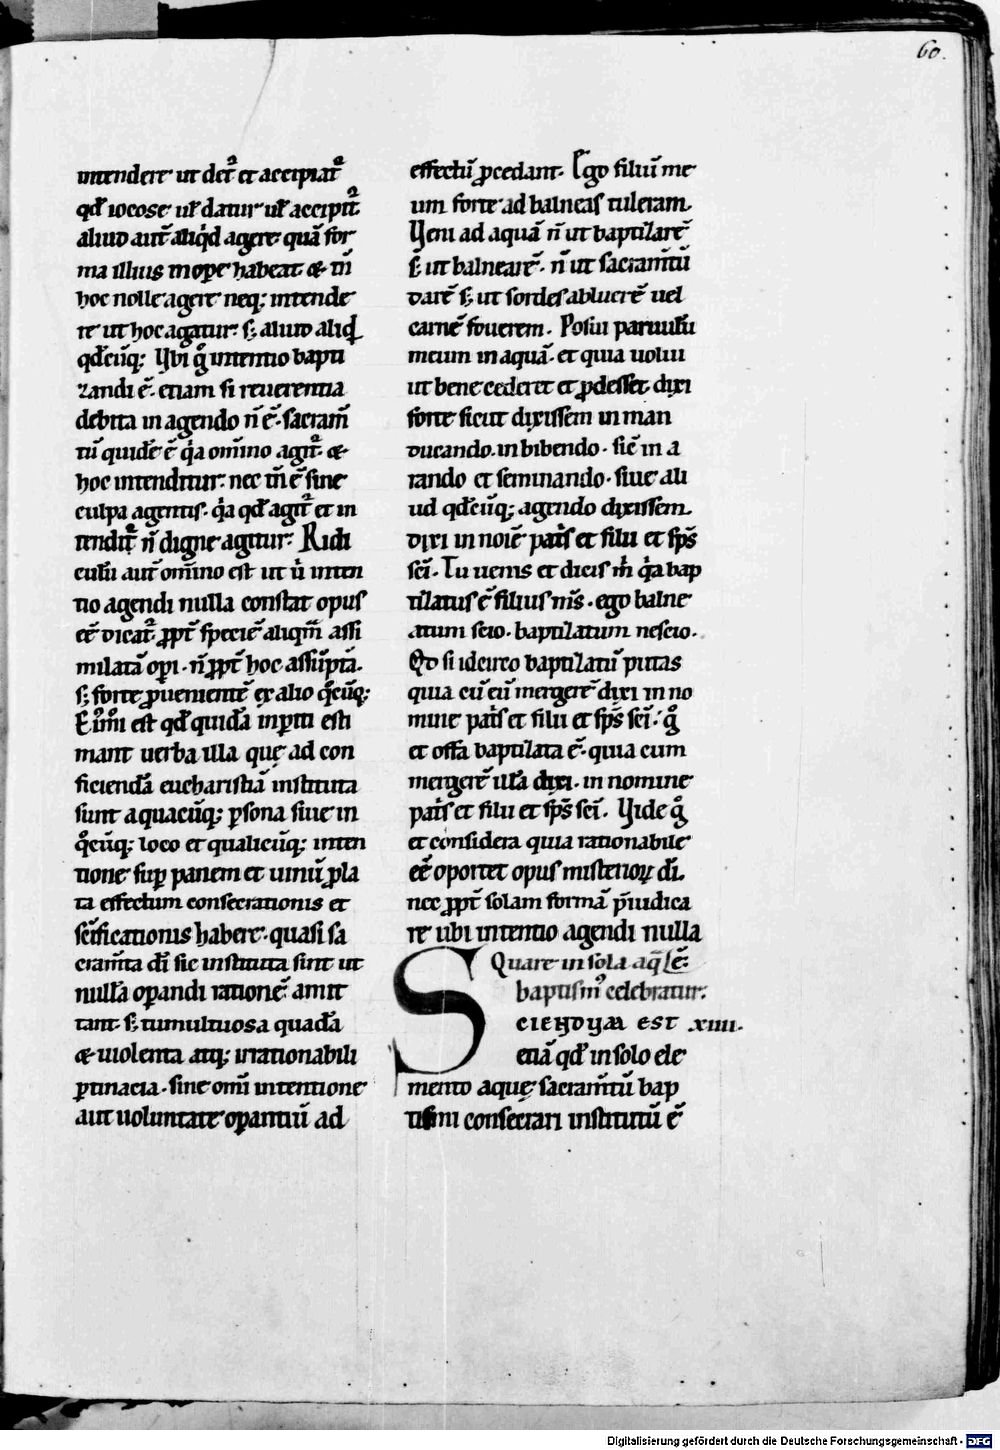 60.
intendere ut det᷑ et accipiat᷑
qd̄ iocose ul̄ datur ul̄ accipit᷑.
aliud aut̄ aliqͥd agere quā for
ma illius in oꝑe habeat. & tn̄
hoc nolle agere neq; intende
re ut hoc agatur. s; aliud aliqd̄
qd̄cūq; Ubi gͦ intentio bapti
zandi ē. etiam si reuerentia
debita in agendo n̄ ē. sacram̄
tū quidē ē qͥa om̄ino agit᷑. &
hoc intenditur. nec tn̄ ē sine
culpa agentis. qͥa qd̄ agit᷑ et in
tendit᷑ n̄ digne agitur. Ridi
culū aut̄ om̄ino est ut ū inten
tio agendi nulla constat opus
eē dicat᷑. ꝓpt̄ speciē aliqm̄ assi
milatā oꝑi. n̄ ꝓpt̄ hoc assūptā.
s; forte ꝓuenientē ex alio qͦcūq;
Enim̄ est qd̄ quidā inꝑiti esti
mant uerba illa que ad con
ficiendā eucharistiā instituta
sunt a quacūq; ꝑsona siue in
qͦcūq; loco et qualicūq; inten
tione suꝑ panem et uinū ꝓla
ta effectum consecrationis et
sc̄ificationis habere. quasi sa
cram̄ta dī sic instituta sint ut
null'a oꝑandi rationē amit
tant. s; tumultuosa quadā
& uiolenta atq; irrationabili
ꝑtinacia. sine omī intentione
aut uoluntate oꝑantiū ad
effectū ꝓcedant. Ego filiū me
um forte ad balneas tuleram.
Ueni ad aquā n̄ ut baptizarē
s; ut balnearē. n̄ ut sacram̄tū
darē s; ut sordes abluerē uel
carnē fouerem. Posui paruulū
meum in aquā. et quia uolui
ut bene cederet et ꝓdesset. dixi
forte sicut dixissem in man
ducando. in bibendo. siē in a
rando et seminando. siue ali
ud qd̄cūq; agendo dixissem.
dixi in noīe pat̄s et filii et sp̄s
sc̄i. Tu uenis et dicis mͥ qͥa bap
tizatus ē filius m̄s. ego balne
atum scio. baptizatum nescio.
Qd̄ si idcirco baptizatū putas
quia cū eū mergerē dixi in no
mine pat̄s et filii et sp̄s sc̄i. gͦ
et offa baptizata ē. quia cum
mergerē illā dixi. in nomine
pat̄s et filii et sp̄s sc̄i. Uide gͦ
et considera quia rationabile
eē oportet opus misterioꝝ dī.
nec ꝓpt̄ solam formā p̄iudica
re ubi intentio agendi nulla ē.
Quare in sola aq̄
baptism' celebratur.
SCIENDUM EST xiiii.
etiā qd̄ in solo ele
mento aque sacram̄tū bap
tismi consecrari institutū ē
Digitalisierung gefördert durch die Deutsche Forschungsgemeinschaft - DFG